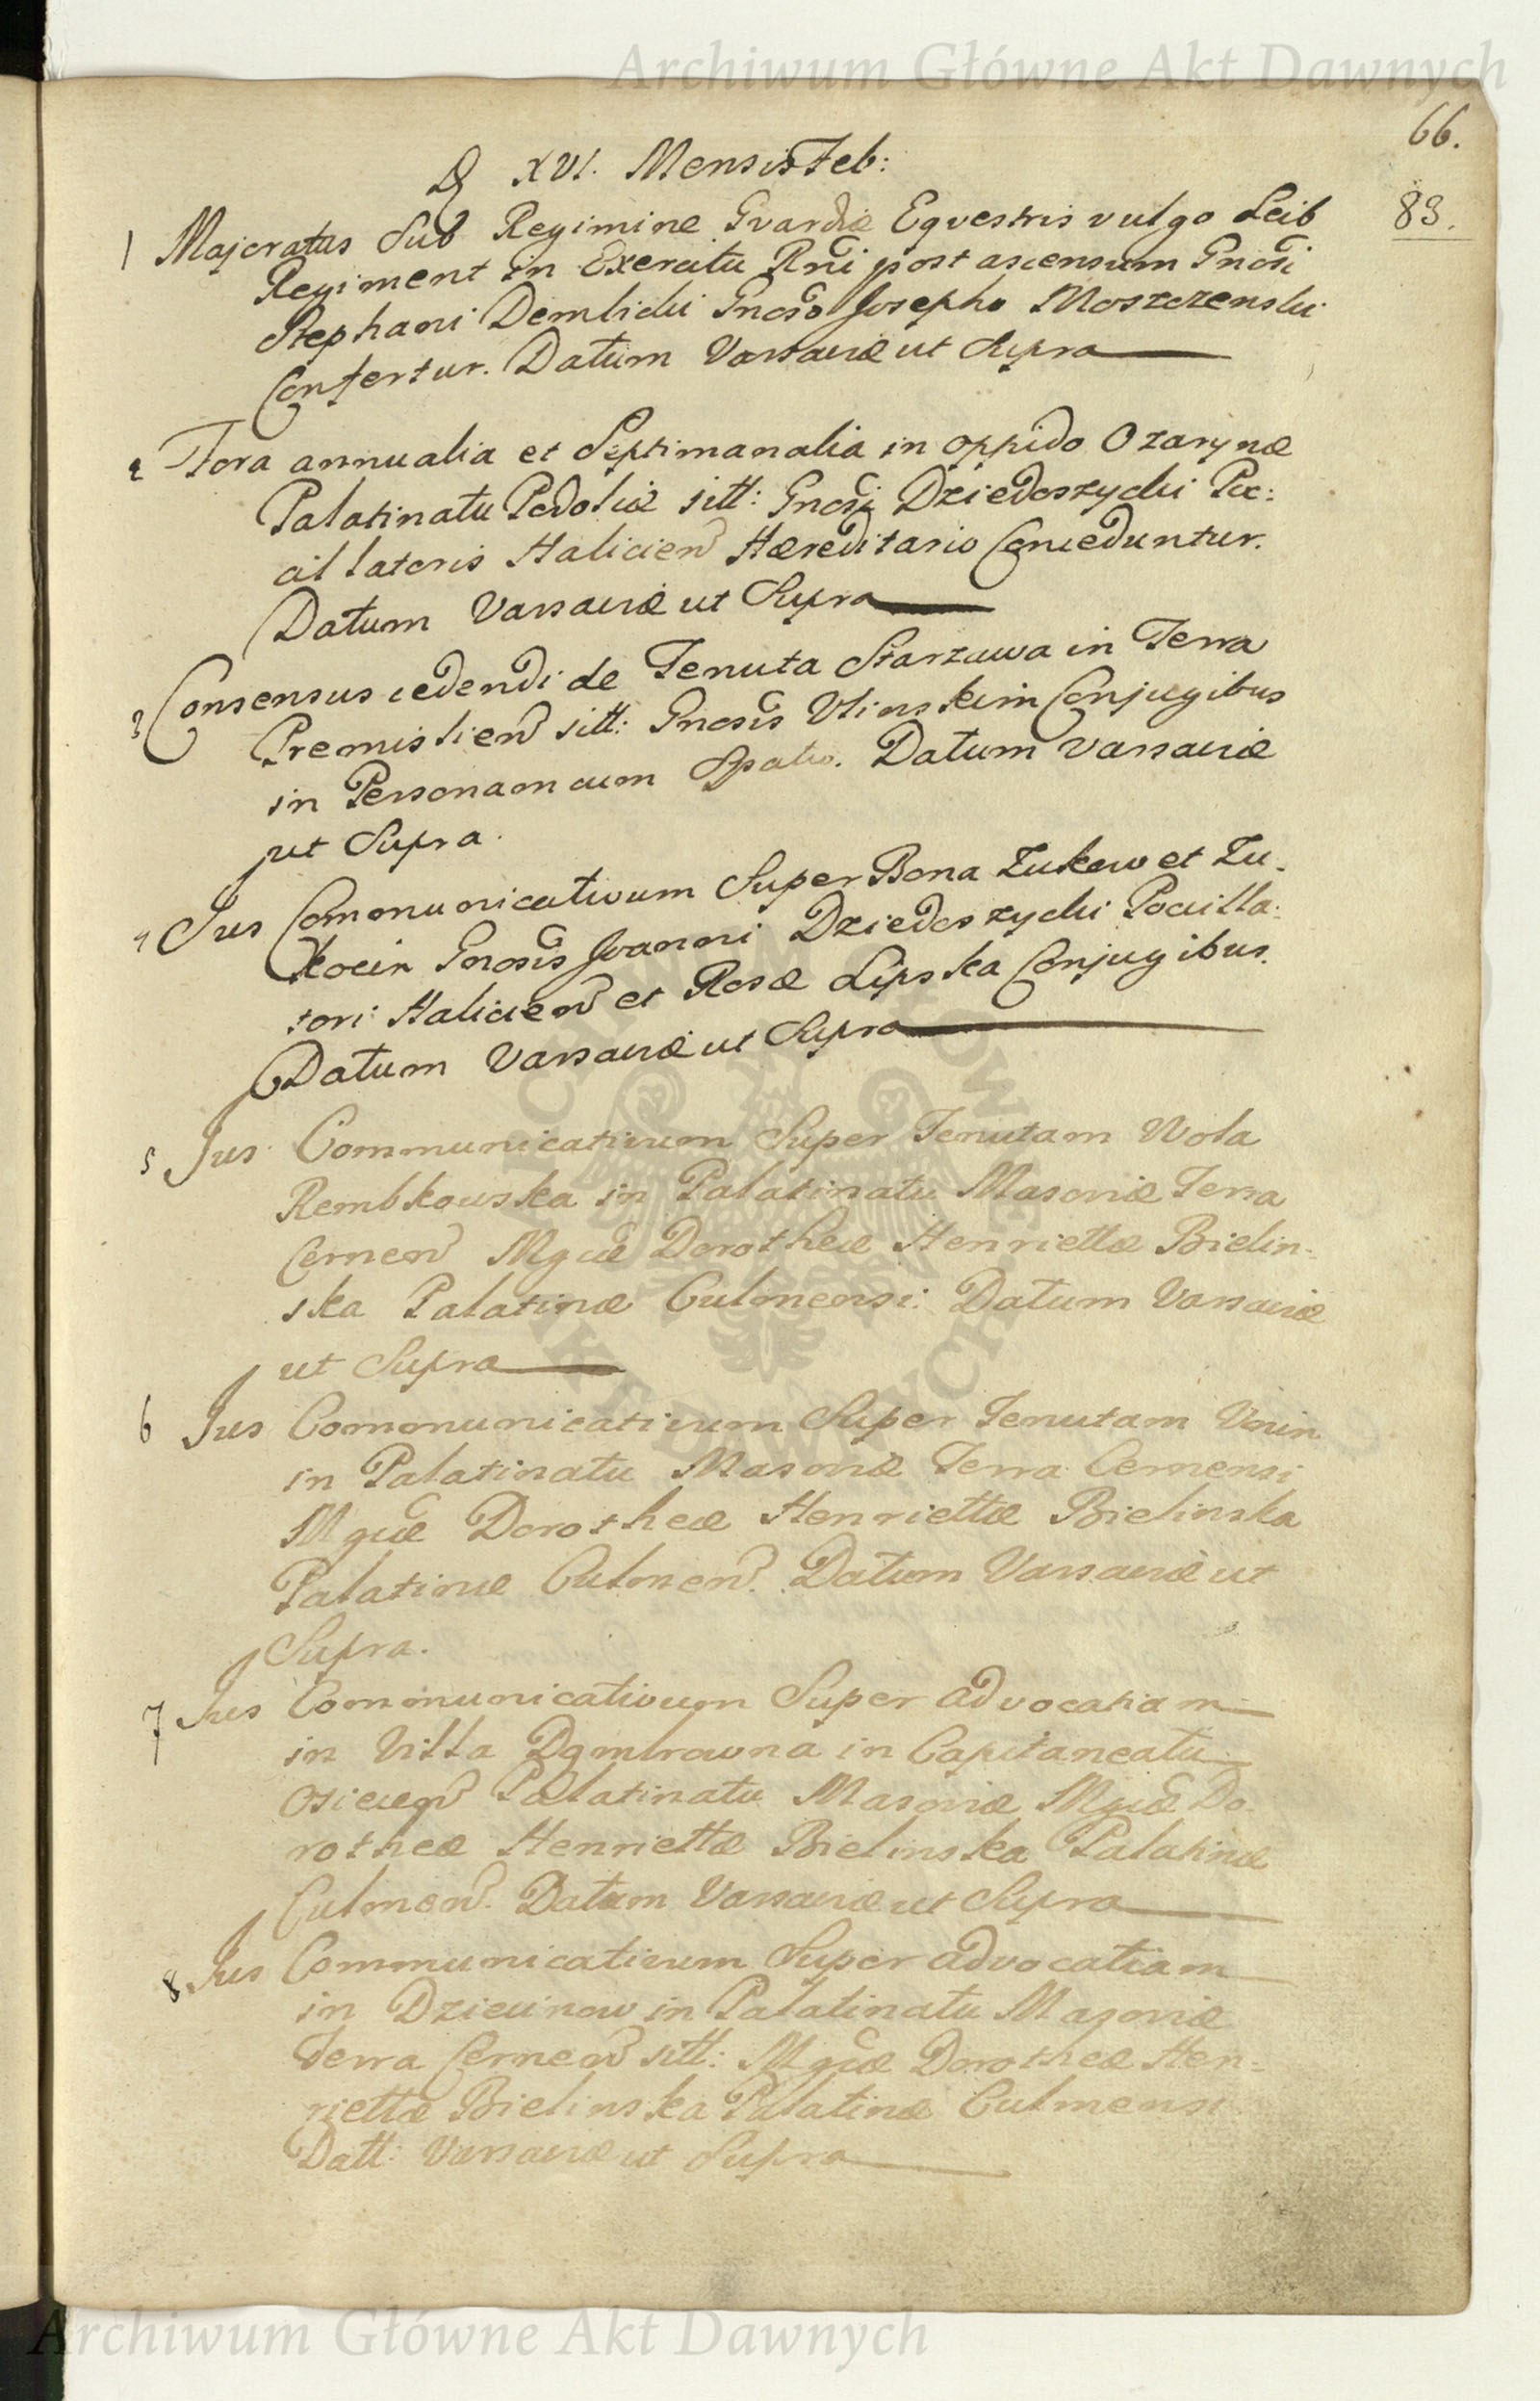 Archiwum Główne Akt Dawnych
66.
D XVI. Mensis Feb:
83.
1 Majoratus Sub Regimine Gvardiæ Eqvestris vulgo Leib
Regiment in Exercitu Rni post ascensum Gnosi
Stephani Dembicki Gnoso Josepho Moszczenski
Confertur. Datum Varsaviæ ut Supra
2 Fora annualia et Septimanalia in oppido Ozarynæ
Palatinatu Podoliæ sitt: Gnosi Dziedoszycki Poc:
cillatoris Halicien Hæreditario Conceduntur.
Datum Varsaviæ ut Supra
3 Consensus cedendi de Tenuta Starzawa in Terra
Premislien sitt: Gnosis Ulinskim Conjugibus
in Personam cum Spatio. Datum Varsaviæ
ut Supra.
4 Jus Communicativum Super Bona Zukow et Zu-
kocin Gnosis Joanni Dziedoszycki Pocilla:
tori Halicien et Rosæ Lipska Conjugibus.
Datum Varsaviæ ut Supra
5 Jus Communicativum Super Tenutam Wola
Rembkowska in Palatinatu Masoviæ Terra
Cernen Mgcæ Dorotheæ Henriettæ Bielin-
ska Palatinæ Culmensi: Datum Varsaviæ
ut Supra
6 Jus Communicativum Super Tenutam Unin
in Palatinatu Masoviæ Terra Cernensi
Mgcæ Dorotheæ Henriettæ Bielinska
Palatinæ Culmen. Datum Varsaviæ ut
Supra.
7 Jus Communicativum Super advocatiam
in Villa Dombrowna in Capitaneatu
Osiecen Palatinatu Masoviæ Mgcæ Do-
rotheæ Henriettæ Bielinska Palatinæ
Culmen. Datum Varsaviæ ut Supra
8 Jus Communicativum Super advocatiam
in Dziecinow in Palatinatu Mazoviæ
Terra Cernen sitt: Mgcæ Dorotheæ Hen=
riettæ Bielinska Palatinæ Culmensi
Datt: Varsaviæ ut Supra
Archiwum Główne Akt Dawnych